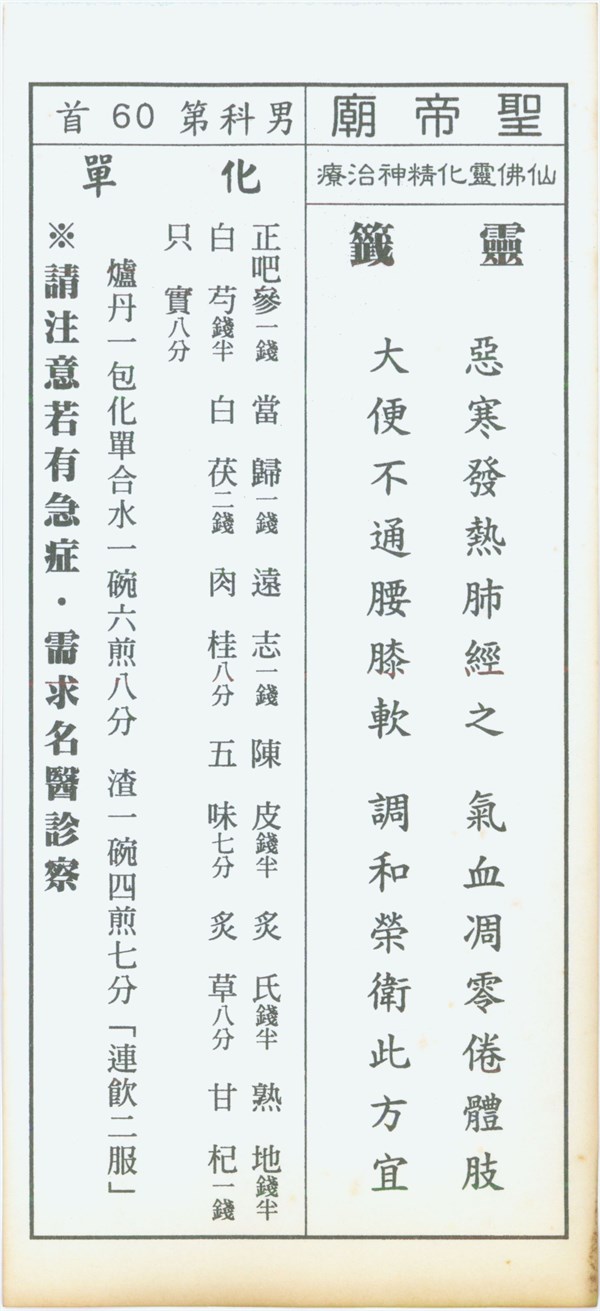 聖帝廟
仙佛靈化精神治療
靈籤
惡寒發熱肺經之　氣血凋零倦體肢
大便不通腰膝軟　調和榮衛此方宜
男科第60首
化單
正吧參一錢　當歸一錢　遠志一錢　陳皮錢半　炙氏錢半　熟地錢半
白芍錢半　白茯二錢　肉桂八分　五味七分　炙草八分　甘杞一錢
只實八分
爐丹一包化單合水一碗六煎八分　渣一碗四煎七分「連飲二服」
※請注意若有急症・需求名醫診察